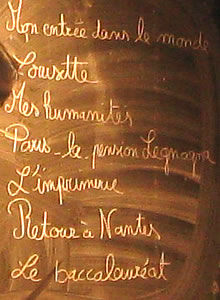 Mon entrée dans le monde
Louisette
Mes humanités
Paris - la pension Legnagna
L'imprimerie
Retour à Nantes
Le baccalauréat